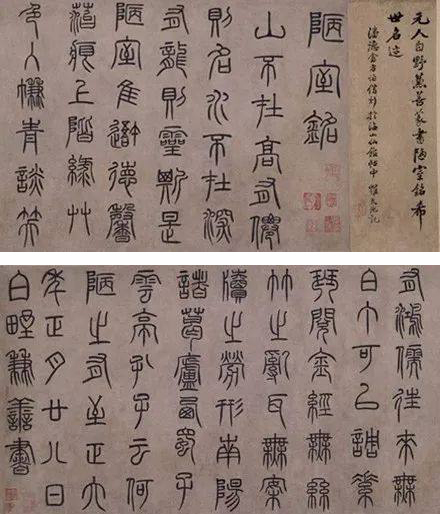 元人白野兼善篆書陋室銘希
世名迹
潘德畬方伯借刻於海山仙館帖中
陋室銘
山不在高有僊
則名水不在深
有龍則靈斯是
陋室惟吾德馨
苔痕上階綠艸
色入簾青談笑
有鴻儒往來無
白丁可以調素
琴閱金經無絲
竹之亂耳無案
牘之勞形南陽
諸葛廬西蜀子
雲亭孔子云何
陋之有至正六
年正月廿八日
白野兼善書